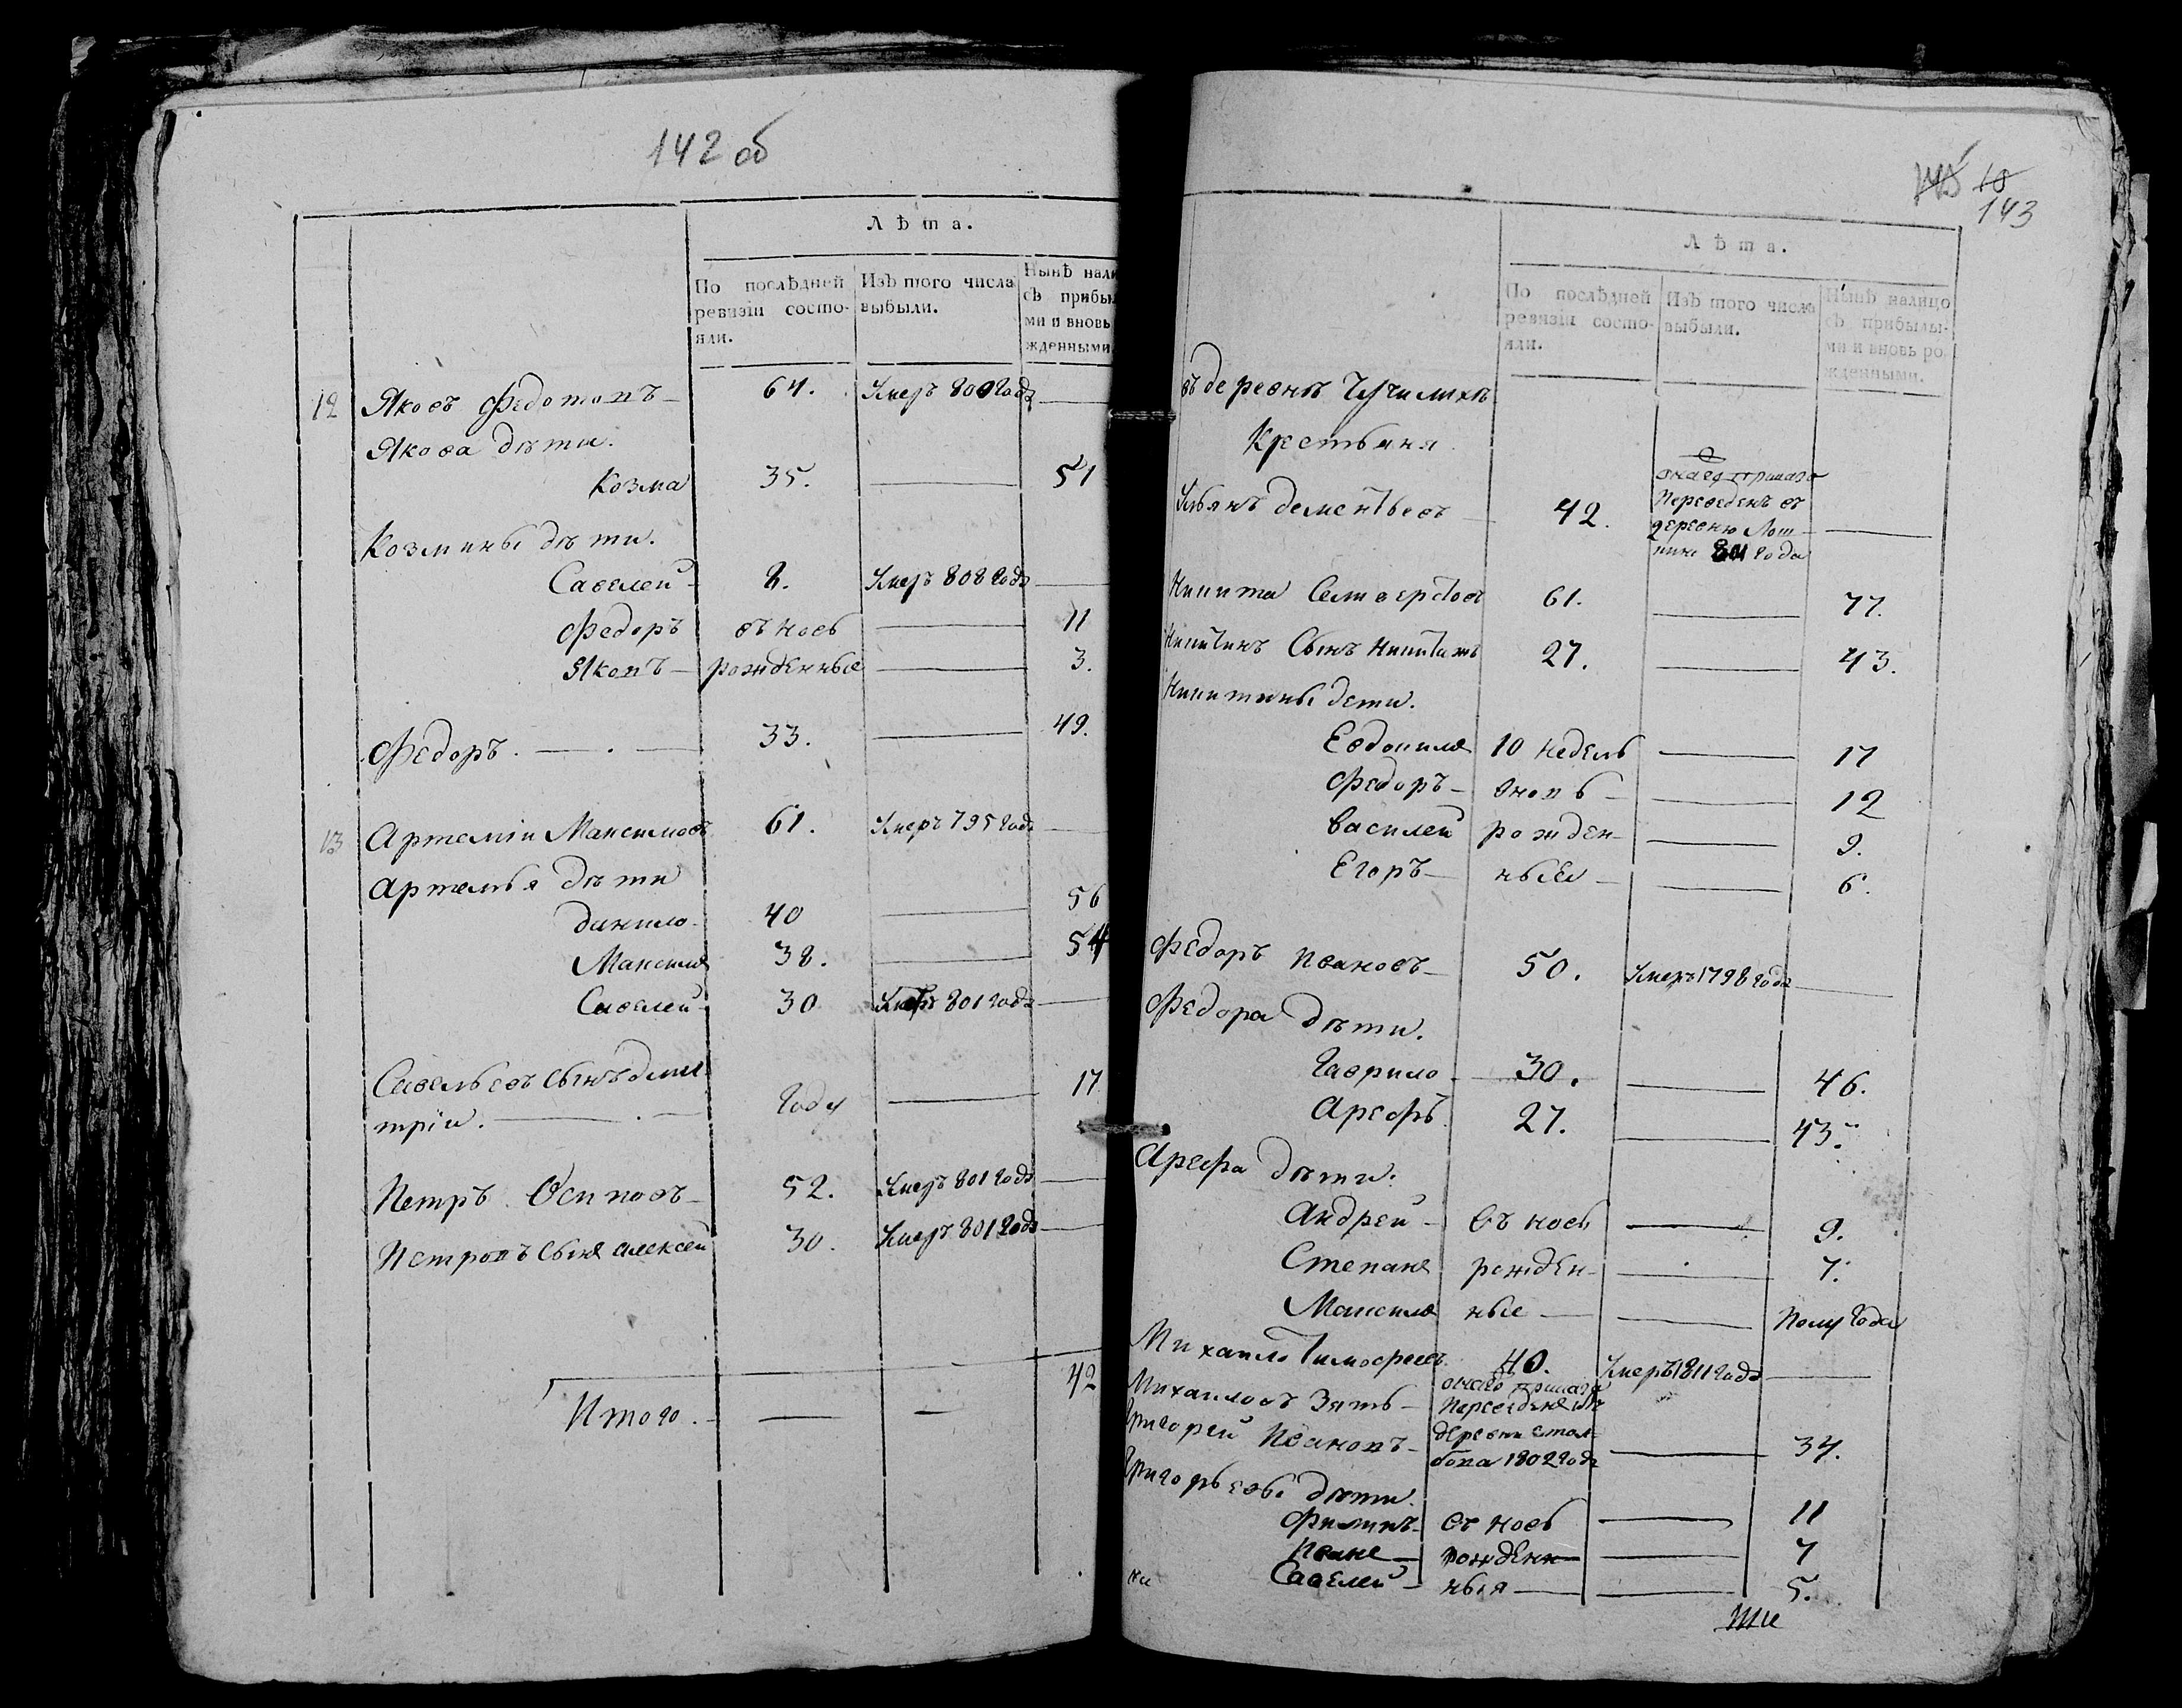 142 об
Лѣта.
По послѣдней ревизіи состояли.
Изъ того числа выбыли.
Нынѣ нали
съ прибыл
ми и вновь
жденными.
12 Яковъ Федотопъ 64. Умеръ 800 Года
Якова дѣти.
Козма 35. 51
Козмины дѣти.
Савелей 8. Умеръ 808 Года
Федоръ въ новь 11
Якопъ рожденные 3.
Федоръ. 33. 49.
13 Артеміи Максимовъ 61. Умеръ 795 Года
Артемья дѣти
данило 40 56
Максимъ 38. 54
Савелей 30 Умеръ 801 Года
Савельевъ сынъ дми
тріи. Году 17
Петръ Осиповъ 52. Умеръ 801 Года
Петропъ сынъ алексеи 30. Умеръ 801 Года
Итого. 42
145 10
143
Лѣта.
По послѣдней ревизіи состояли.
Изъ того числа выбыли.
Нынѣ налицо съ прибылыми и вновь рожденными.
въ деревнѣ Чучилихѣ
Крестьяня
Ульянъ дементьевъ 42.
Переведенъ въ
деревню Лош
кине 801 Года
Никита Селиверстовъ 61. 77.
Никитинъ Сынъ Никитинъ 27. 43.
Никитины дети.
Евдокимъ 10 недель 17
Федоръ внопь 12
Василеи рожден 9.
Егоръ ныеи 6.
Федоръ Ивановъ 50. Умеръ 1798 Года
Федора дѣти.
Гаврило 30. 46.
Арефъ. 27. 43.
Арефа дѣти.
Андреи въ новь 9.
Степанъ рожден 7.
Максимъ ные Полу Года
Михаило Тимофеевъ. 40. Умеръ 1811 Года
Михаиловъ Зять
Григореи Иванопъ 34.
Переведенъ изъ
деревни Стол
бопа 1802 Года
Григорьевы дѣти.
Филипъ въ новь 11
Иванъ рожденн 7
Савелеи ныя 5.